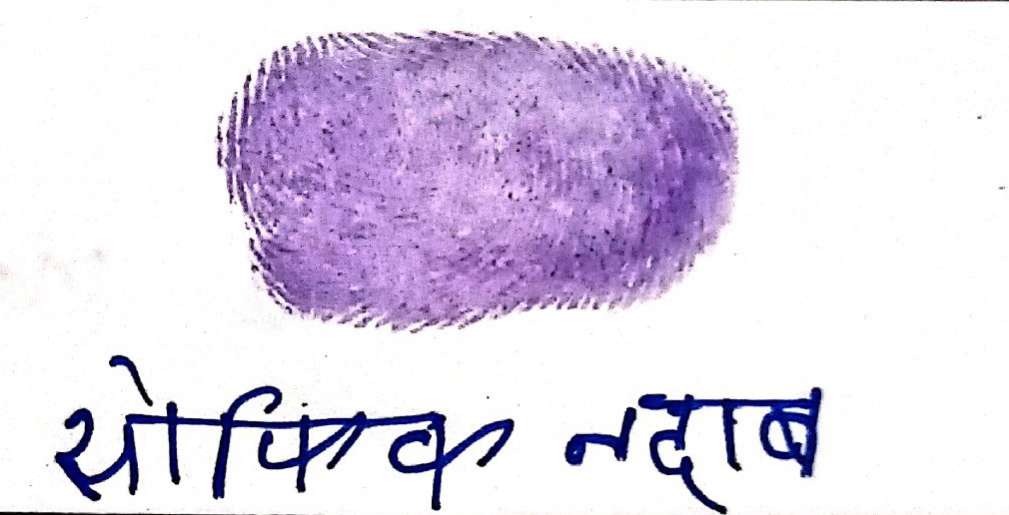 सोफिक नदाब